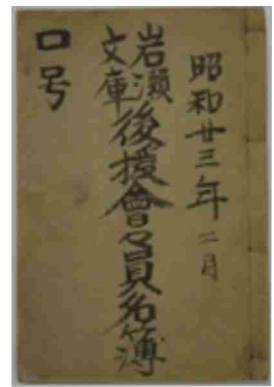 昭和廿三年二月
岩瀬文庫後援會々員名簿
口号